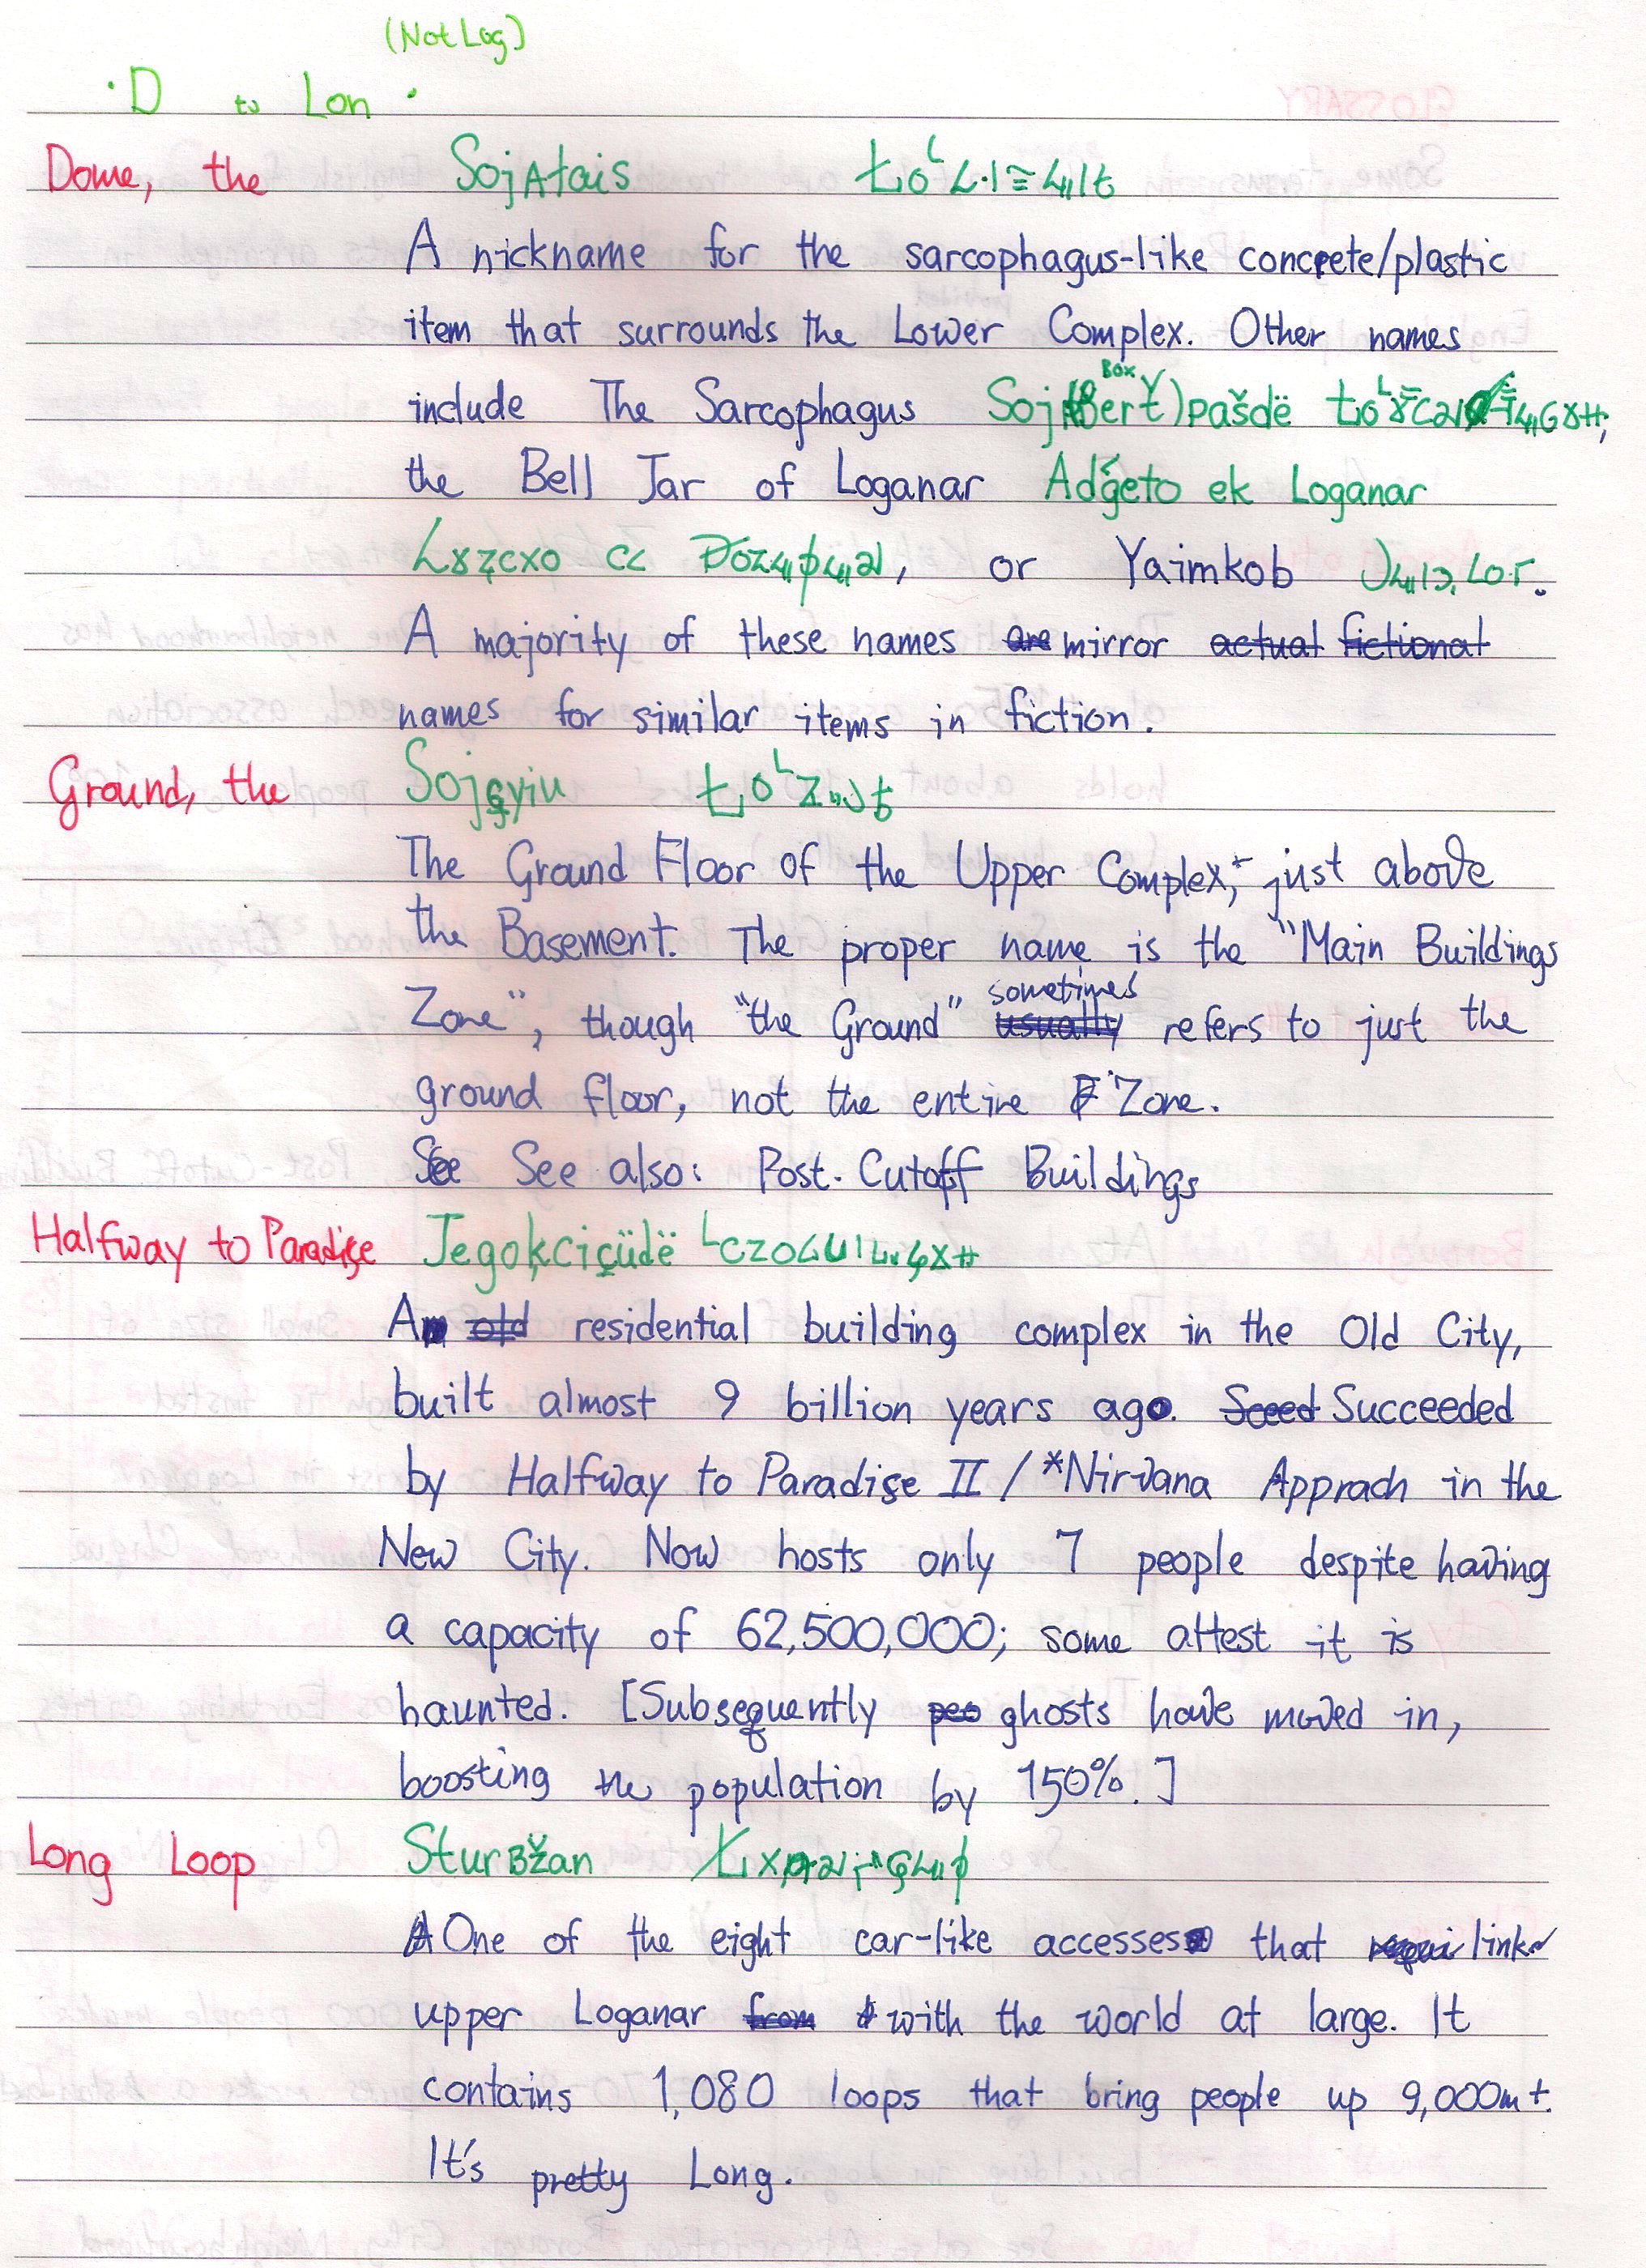 (Not Log)
· D to Lon ·
Dome, the Sojatais
A nickname for the sarcophagus-like concrete/plastic
item that surrounds the Lower Complex. Other names
Box
include The Sarcophagus pašdë
the Bell Jar of Loganar Adģeto ek Loganar
, or Yaimkob
A majority of these names are mirror actual fictional
names for similar items in fiction.
Ground, the Sojgyiu
The Ground Floor of the Upper Complex, just above
the Basement. The proper name is the "Main Buildings
sometimes
Zone", though "the Ground" usually refers to just the
ground floor, not the entire Zone.
See See also: Post-Cutoff Buildings
Halfway to Paradişe Jegoķciçüdë
A old residential building complex in the Old City,
built almost 9 billion years ago. Sceed Succeeded
by Halfway to Paradişe II / *Nirvana Apprach in the
New City. Now hosts only 7 people despite having
a capacity of 62,500,000; some attest it is
haunted. [Subsequently peo ghosts have moved in,
boosting the population by 150%.]
Long Loop Sturbžan
A One of the eight car-like accesses that link
upper Loganar from with the world at large. It
contains 1,080 loops that bring people up 9,000m+.
It's pretty Long.